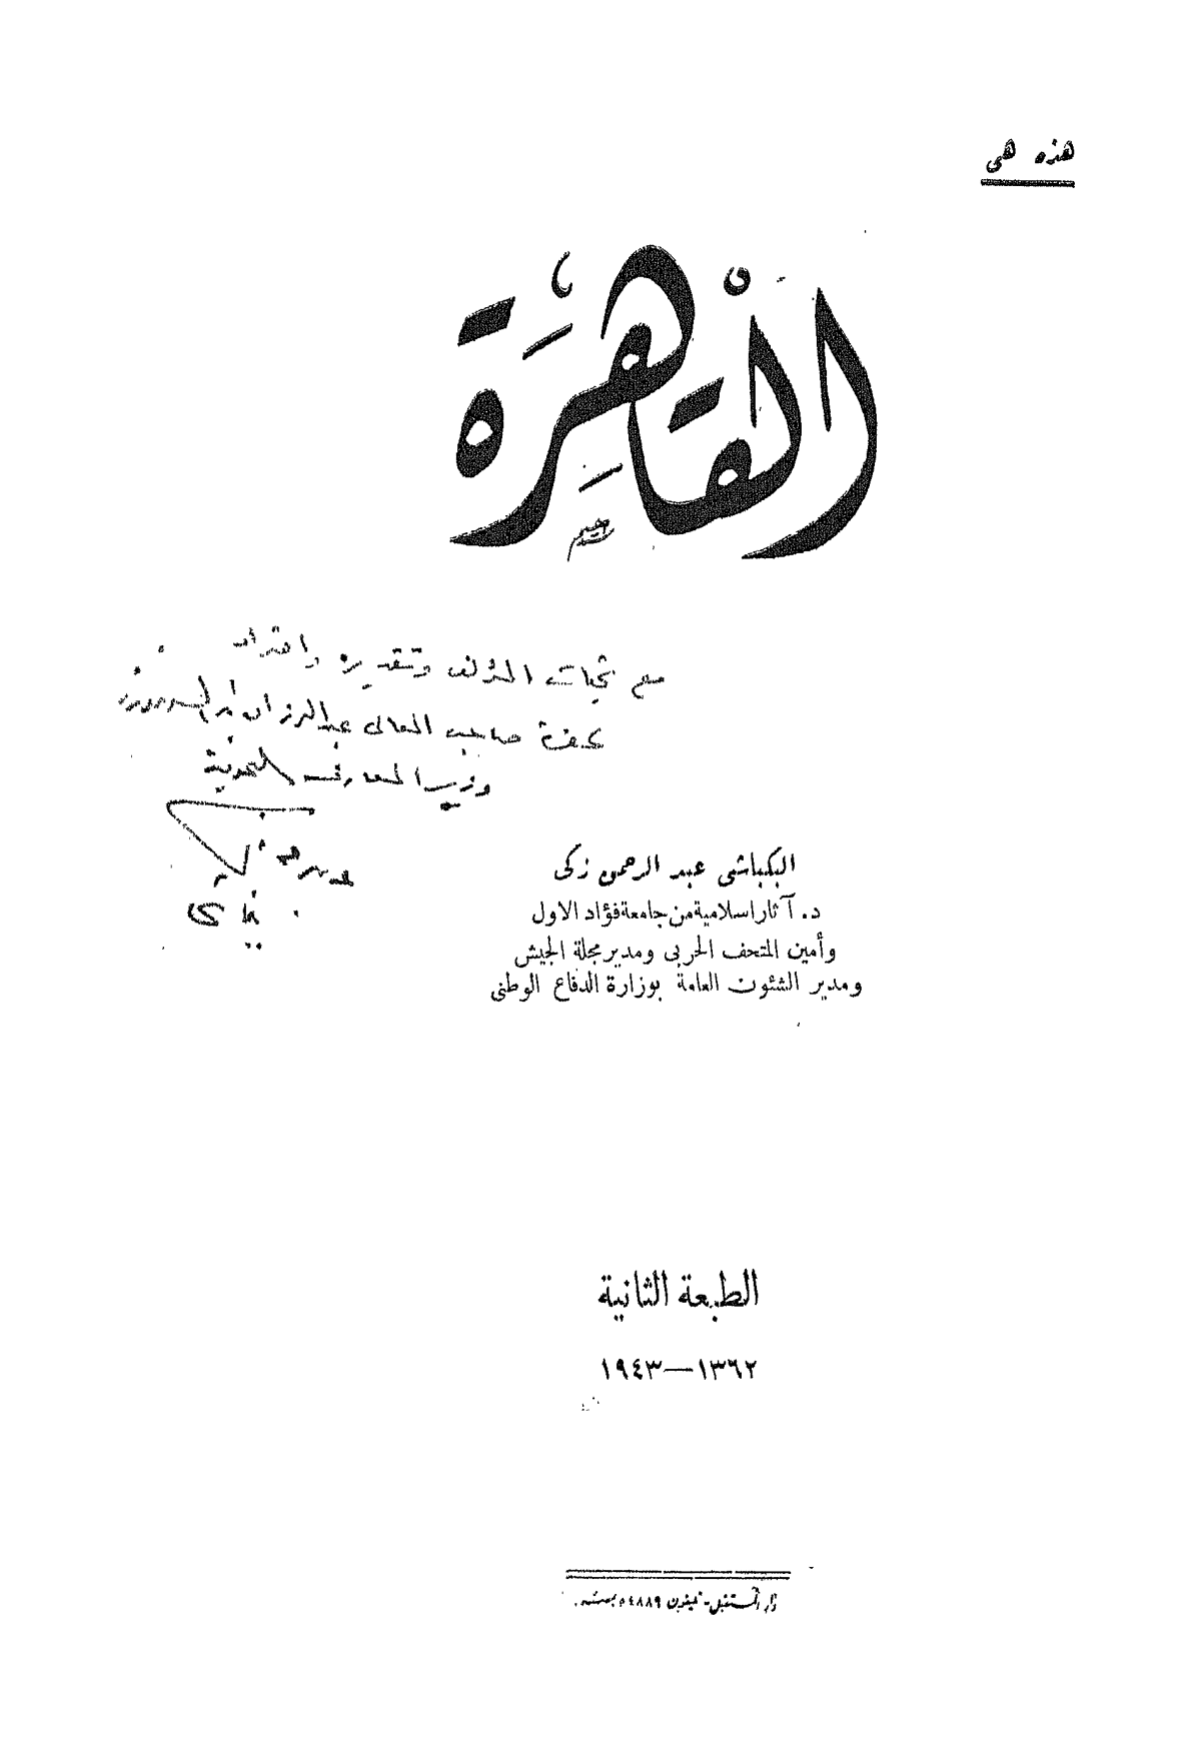 هذه هى
الْقَاهِرَة
مع تحيات المؤلف وتقديره واعتزازه
لحضرة صاحب المعالى عبد الرزاق السنهورى
وزير المعارف العمومية
عبد الرحمن زكى
البكباشى عبد الرحمن زكى
د. آثار اسلامية من جامعة فؤاد الاول
وأمين المتحف الحربى ومدير مجلة الجيش
ومدير الشئون العامة بوزارة الدفاع الوطنى
الطبعة الثانية
١٣٦٢—١٩٤٣
دار المستقبل - تليفون ٥٤٨٨٩ بمصر